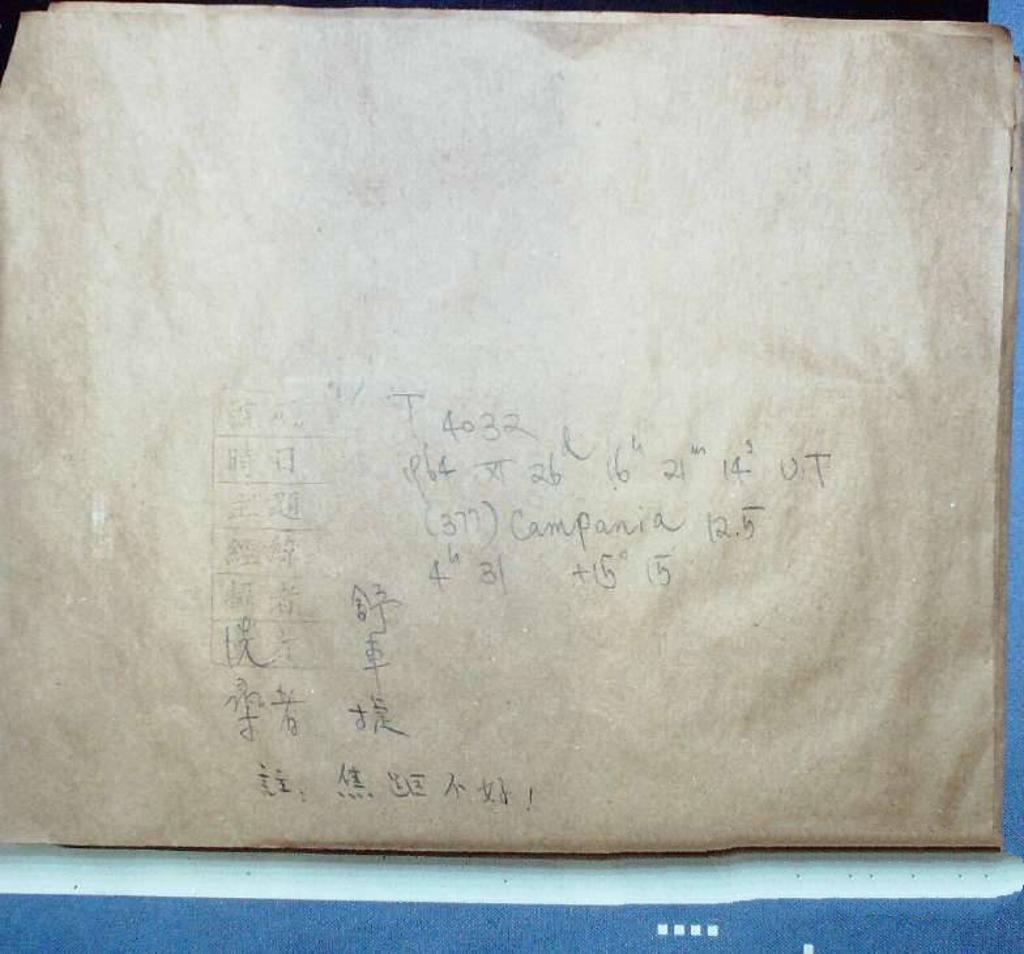 T 4032
時日 1964 XI 26ᵈ 16ʰ 21ᵐ 14ˢ U.T
主題 (377) Campania 12.5
經緯 4ʰ 31 +15° 15
攝者 舒
車
者 捷
註: 焦距不好!